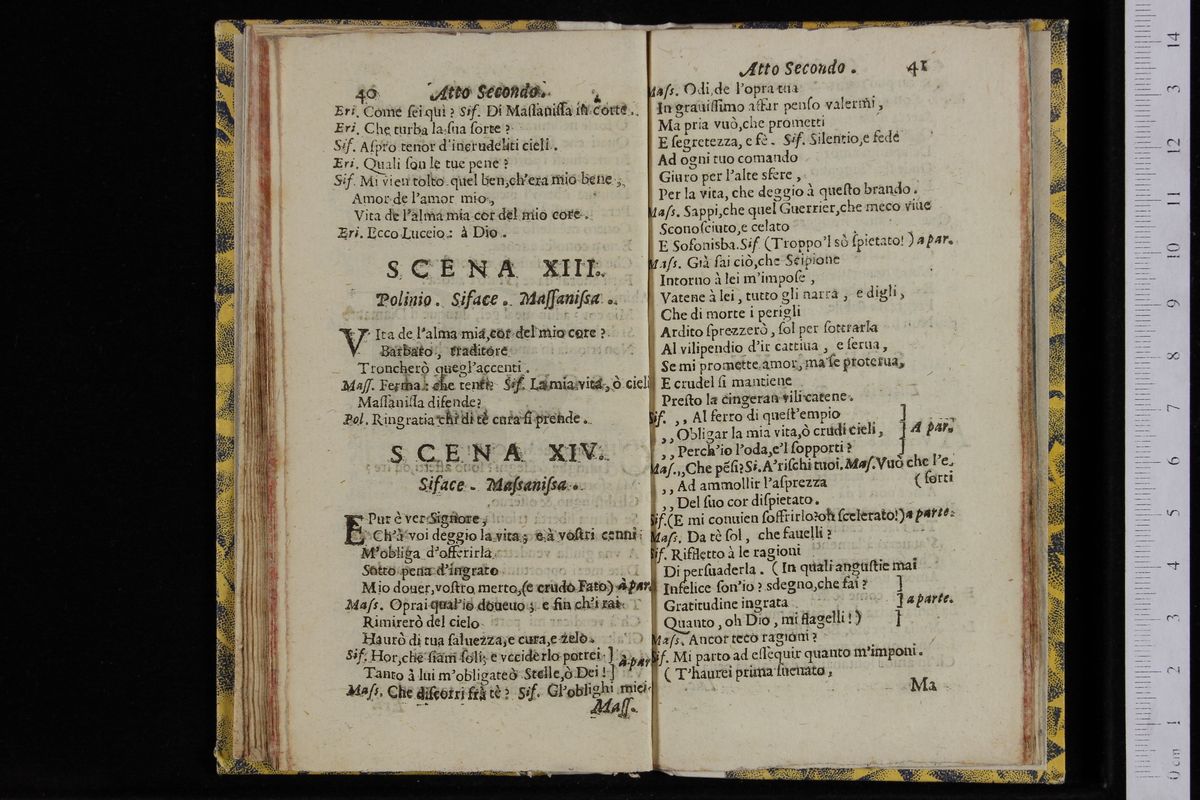 40 Atto Secondo.
Eri. Come ſei qui? Sif. Di Maſſaniſſa in corte.
Eri. Che turba la ſua ſorte?
Sif. Aſpro tenor d'incrudeliti cieli.
Eri. Quali ſon le tue pene?
Sif. Mi vien tolto quel ben,ch'era mio bene,
Amor de l'amor mio,
Vita de l'alma mia cor del mio core.
Eri. Ecco Luceio: à Dio.
SCENA XIII.
Polinio. Siface. Maſſaniſsa.
VIta de l'alma mia,cor del mio core?
Barbaro, traditore
Troncherò quegl'accenti.
Maſſ. Ferma: che tenti? Sif. La mia vita, ò cieli
Maſſaniſſa difende?
Pol. Ringratia chi di tè cura ſi prende.
SCENA XIV.
Siface. Maſsaniſsa.
E Pur è ver Signore,
Ch'à voi deggio la vita; e à voſtri cenni
M'obliga d'offerirla
Sotto pena d'ingrato
Mio douer,voſtro merto,(e crudo Fato) à par.
Maſs. Oprai qual'io doueuo; e fin ch'i rai
Rimirerò del cielo
Haurò di tua ſaluezza,e cura,e zelo.
Sif. Hor,che ſiam ſoli; e vcciderlo potrei ] à par
Tanto à lui m'obligate ò Stelle,ò Dei! ]
Maſs. Che diſcorri frà tè? Sif. Gl'oblighi miei
Maſſ.
Atto Secondo. 41
Maſs. Odi,de l'opra tua
In grauiſſimo affar penſo valermi,
Ma pria vuò,che prometti
E ſegretezza, e fè. Sif. Silentio,e fede
Ad ogni tuo comando
Giuro per l'alte sfere,
Per la vita, che deggio à queſto brando.
Maſs. Sappi,che quel Guerrier,che meco viue
Sconoſciuto,e celato
E Sofonisba.Sif (Troppo'l sò ſpietato!) a par.
Maſs. Già ſai ciò,che Scipione
Intorno à lei m'impoſe,
Vatene à lei, tutto gli narra, e digli,
Che di morte i perigli
Ardito ſprezzerò, ſol per ſottrarla
Al vilipendio d'ir cattiua, e ſerua,
Se mi promette amor, ma ſe proterua,
E crudel ſi mantiene
Preſto la cingeran vili catene.
Sif. ,, Al ferro di queſt'empio ]
,, Obligar la mia vita,ò crudi cieli, ] A par.
,, Perch'io l'oda,e'l ſopporti? ]
Maſ.,,Che pẽſi? Si. A'riſchi tuoi. Maſ.Vuò che l'e-
,, Ad ammollir l'aſprezza (ſorti
,, Del ſuo cor diſpietato.
Sif.(E mi conuien ſoffrirlo?oh ſcelerato!)a parte.
Maſs. Da tè ſol, che fauelli?
Sif. Rifletto à le ragioni
Di perſuaderla. (In quali anguſtie mai
Infelice ſon'io? sdegno,che fai? ]
Gratitudine ingrata ] a parte.
Quanto, oh Dio, mi flagelli!) ]
Maſs. Ancor teco ragioni?
Sif. Mi parto ad eſſequir quanto m'imponi.
(T'haurei prima ſuenato,
Ma
0 cm 1 2 3 4 5 6 7 8 9 10 11 12 13 14